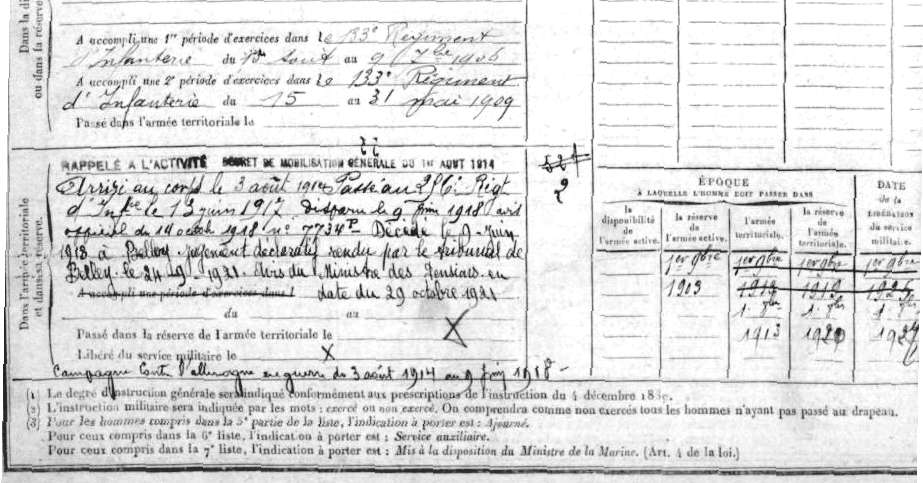 Dans la di
ou dans sa réserve
A accompli une 1re période d'exercices dans le 133e Regiment
d'Infanterie du août au 9 7bre 1906
A accompli une 2e période d'exercices dans le 133e Régiment
d'Infanterie du 15 au 31 mai 1909
Passé dans l'armée territoriale le
Dans l'armée territoriale
et dans sa réserve.
RAPPELÉ A L'ACTIVITÉ DÉCRET DE MOBILISATION GÉNÉRALE DU 1er AOUT 1914
Arrivé au corps le 3 août 1914 Passé au Régt
d'Infie le 13 juin 1917 disparu le 9 juin 1918 avis
officiel du 14 octob 1918 no 7734 Décédé le 9 juin
1918 à jugement déclaratif rendu par le tribunal de
Belley le 24 1921 Avis du Ministre des Pensions en
date du 29 octobre 1921
A accompli une période d'exercices dans l
du au
Passé dans la réserve de l'armée territoriale le X
Libéré du service militaire le X
Campagne contre l'allemagne en guerre du 3 août 1914 au 9 juin 1918
2
ÉPOQUE
À LAQUELLE L'HOMME DOIT PASSER DANS
DATE
de la
LIBÉRATION
du service
militaire.
la
disponibilité
de
l'armée active.
la réserve
de
l'armée active.
l'armée
territoriale.
la réserve
de
l'armée
territoriale.
1er 9bre 1er 9bre 1er 9bre 1er 9bre
1903 1913 1919
1913
(1) Le degré d'instruction générale sera indiqué conformément aux prescriptions de l'instruction du 4 décembre
(2) L'instruction militaire sera indiquée par les mots : exercé ou non exercé. On comprendra comme non exercés tous les hommes n'ayant pas passé au drapeau.
(3) Pour les hommes compris dans la 5e partie de la liste, l'indication à porter est : Ajourné.
Pour ceux compris dans la 6e liste, l'indication à porter est : Service auxiliaire.
Pour ceux compris dans la 7e liste, l'indication à porter est : Mis à la disposition du Ministre de la Marine. (Art. 4 de la loi.)